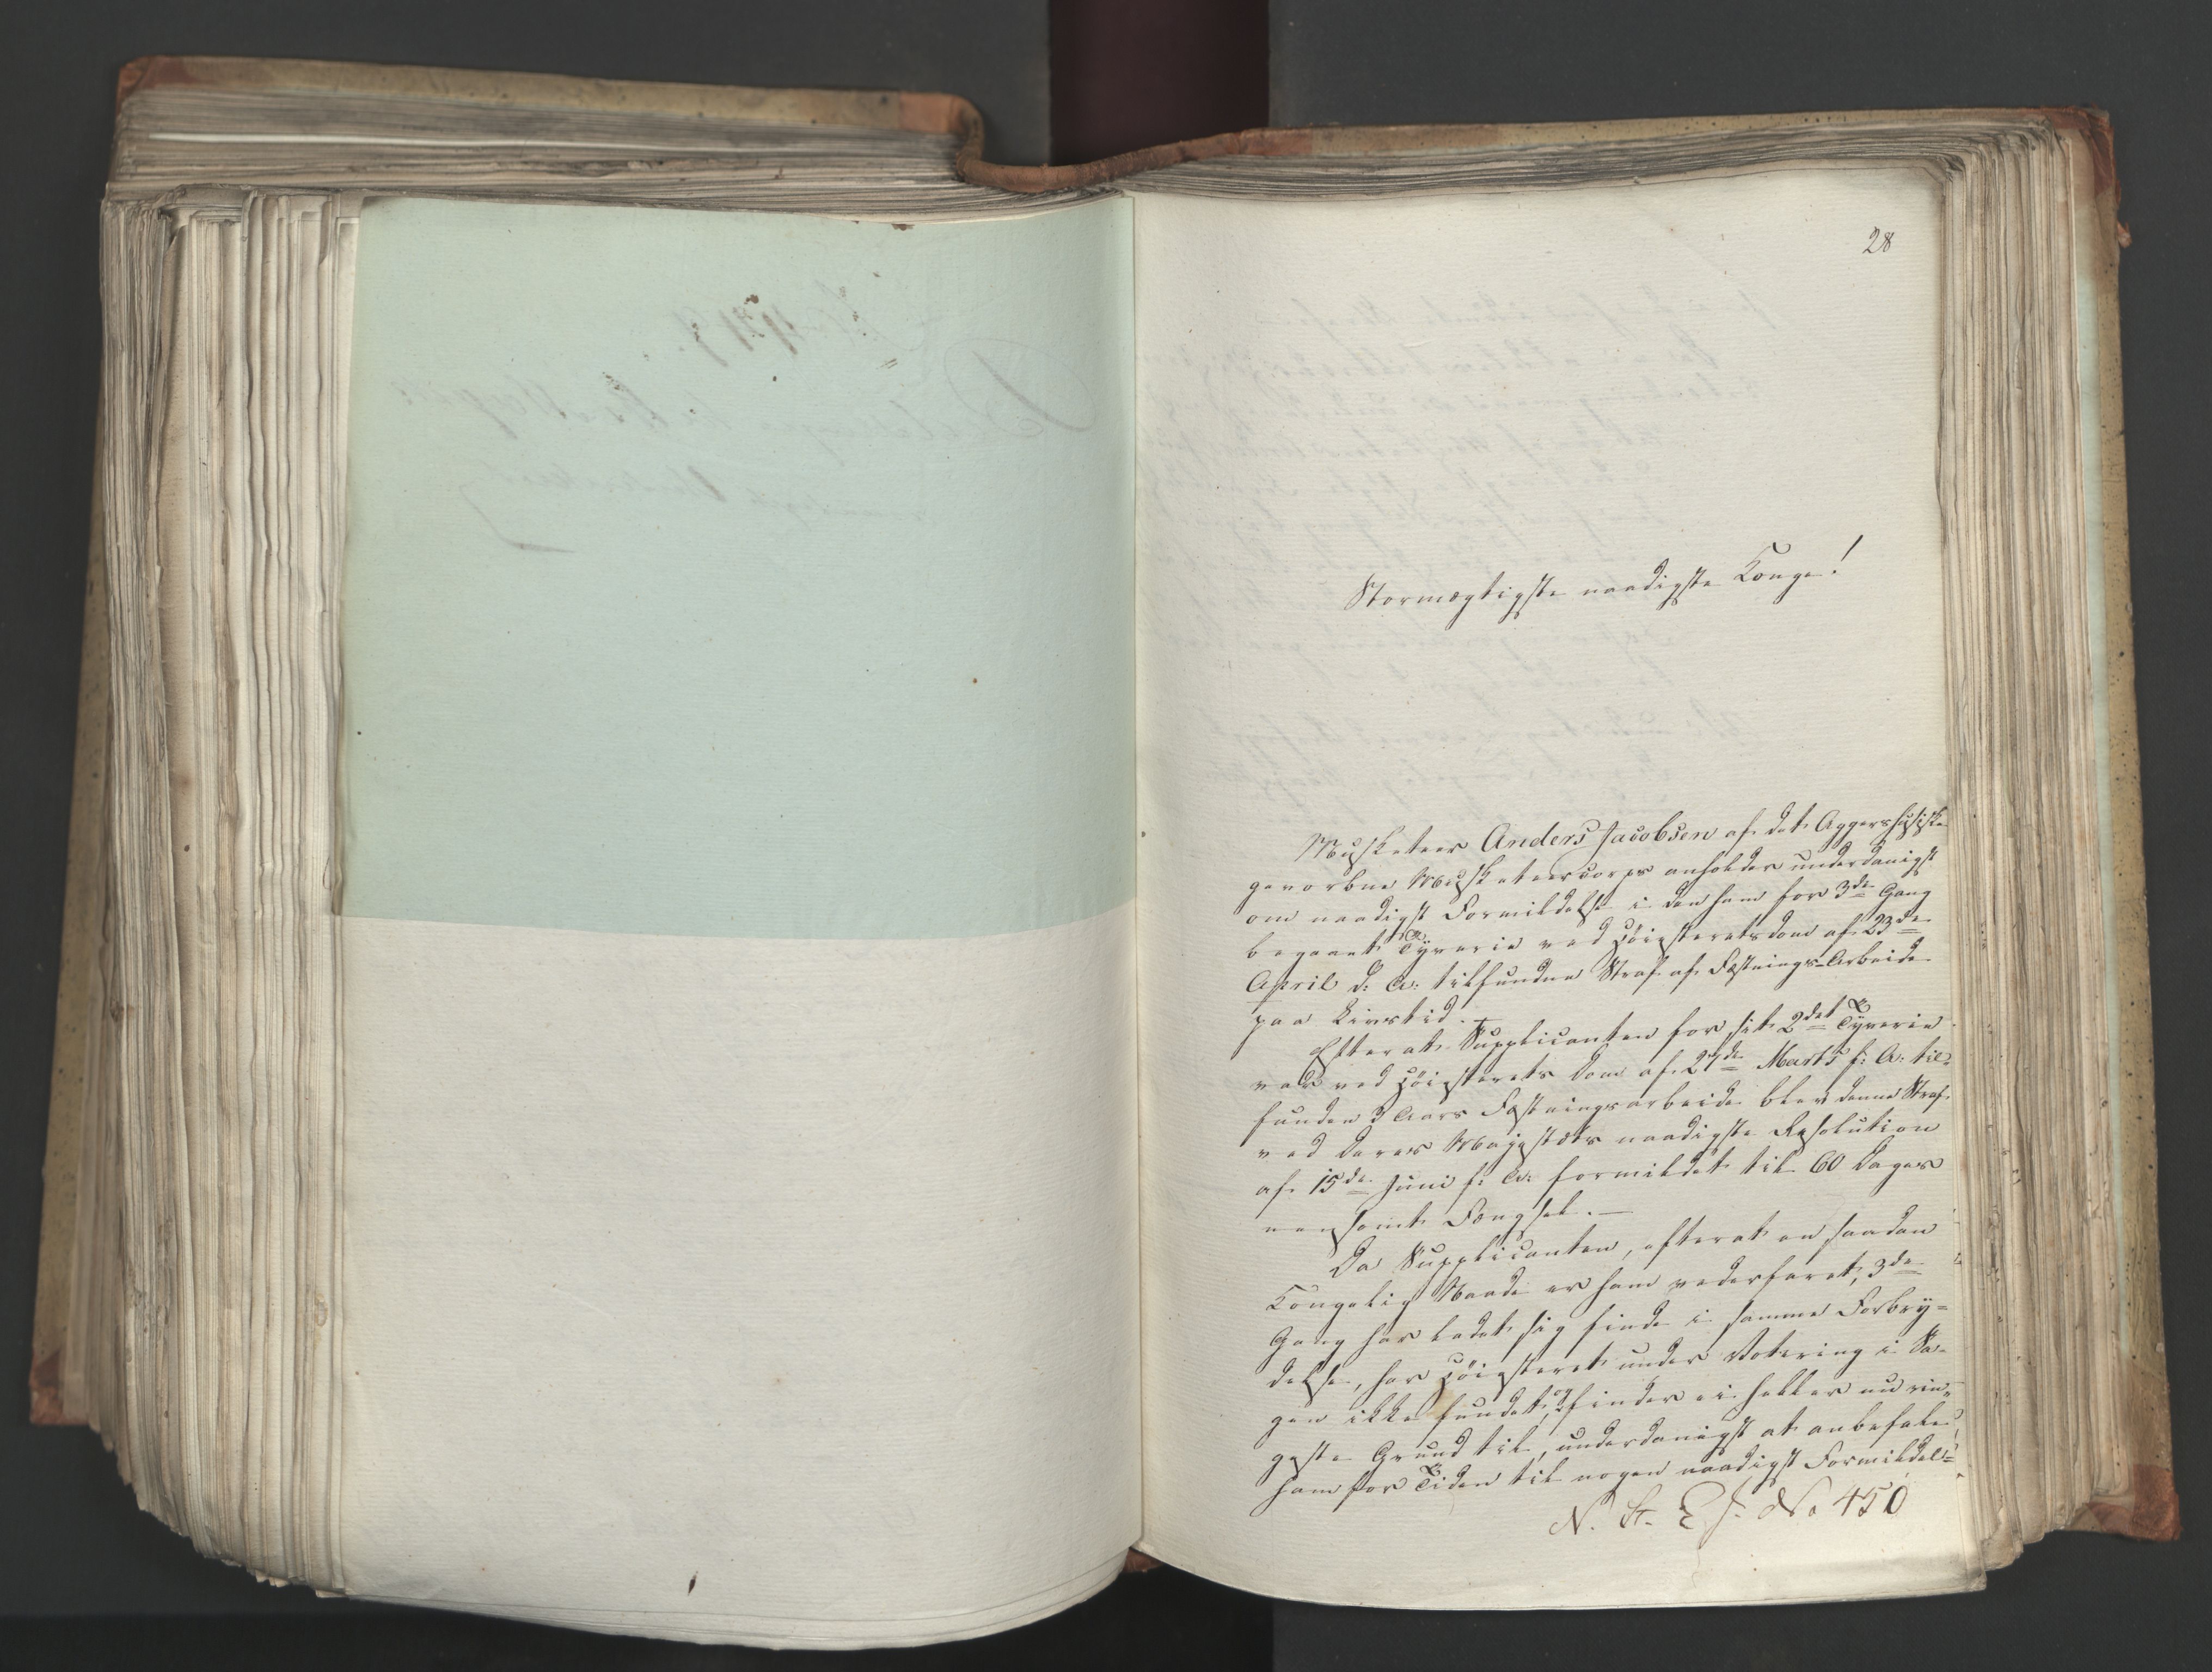 28
Stormægtigste naadigste Konge!
Musketeer Anders Jacobsen af det Aggershusiske
gevorbne Musketeercorps anholder underdanigst
om naadigst Formildelse i den ham for 3de Gang
begaaet Tyverie ved Höiesteretsdom af 23de
April d: A: tilfundne Straf af Fæstnings-Arbeide
paa Livstid. —
Efter at Supplicanten for sit 2det Tyverie
var ved Höiesterets Dom af 27de Marts f: A: til-
funden 3 Aars Fæstningsarbeide blev denne Straf
ved Deres Majestæts naadigste Resolution
af 15de Juni f: A: formildet til 60 Dages
eensomt Fængsel. —
Da Supplicanten, efterat en saadan
Kongelig Naade er ham vederfaret, 3de
Gang har ladet sig finde i samme Forbry-
delse, har Höiesteret under Votering i Sa-
gen ikke fundet, og finder ei heller nu rin-
geste Grund til, underdanigst at anbefale
ham for Tiden til nogen naadigst Formildel-
N. St. E J. No 450